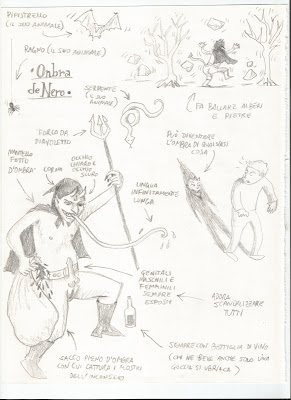 PIPISTRELLO
(IL SUO ANIMALE)
RAGNO (IL SUO ANIMALE)
• Onbra
de Nero •
SERPENTE
(IL SUO
ANIMALE)
(FA BALLARE ALBERI
E PIETRE
FORCA DA
DIAVOLETTO
PUÒ DIVENTARE
L'OMBRA DI QUALSIASI
COSA
MANTELLO
FATTO
D'OMBRA
CORNA
OCCHIO
CHIARO E
OCCHIO
SCURO
LINGUA
INFINITAMENTE
LUNGA
GENITALI
MASCHILI E
FEMMINILI
SEMPRE
ESPOSTI
ADORA
SCANDALIZZARE
TUTTI
SACCO PIENO D'OMBRA
CON CUI CATTURA I MOSTRI
DELL'INCONSCIO
SEMPRE CON BOTTIGLIA DI VINO
(CHI NE BEVE ANCHE SOLO UNA
GOCCIA SI UBRIACA)